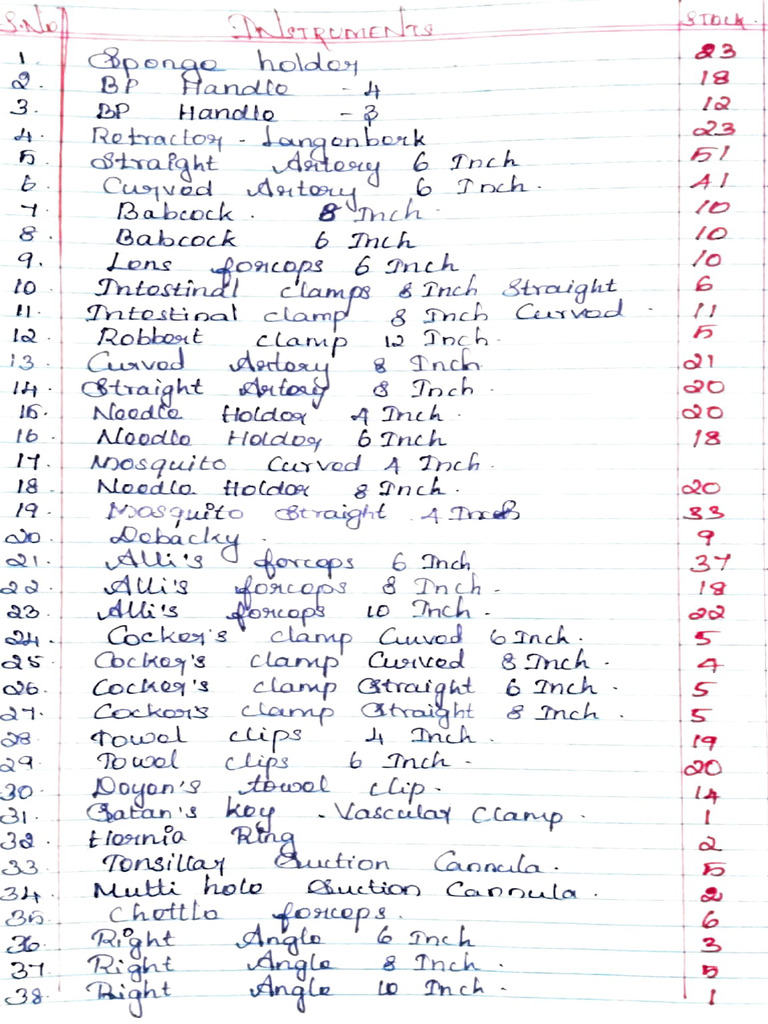 S.No INSTRUMENTS STOCK.
1. Sponge holder 23
2. BP Handle - 4 18
3. BP Handle - 3 12
4. Retractor - Langenberk 23
5. Straight Artery 6 Inch 51
6. Curved Artery 6 Inch. 41
7. Babcock. 8 Inch. 10
8. Babcock 6 Inch 10
9. Lens forceps 6 Inch 10
10 Intestinal clamps 8 Inch Straight 6
11. Intestinal clamp 8 Inch Curved. 11
12. Robbert clamp 12 Inch. 5
13. Curved Artery 8 Inch 21
14. Straight Artery 8 Inch. 20
15. Needle Holder 4 Inch. 20
16 Needle Holder 6 Inch 18
17. Mosquito Curved 4 Inch.
18 Needle Holder 8 Inch. 20
19. Mosquito Straight 4 Inch 33
20. Debacky. 9
21. Alli's forceps 6 Inch 37
22. Alli's forceps 8 Inch. 18
23. Alli's forceps 10 Inch. 22
24. Cocker's clamp Curved 6 Inch. 5
25 Cocker's clamp Curved 8 Inch. 4
26. Cocker's clamp Straight 6 Inch. 5
27. Cocker's clamp Straight 8 Inch. 5
28 Towel clips 4 Inch. 19
29. Towel clips 6 Inch. 20
30. Doyen's towel clip. 14
31. Satan's key - Vascular Clamp. 1
32. Hernia Ring 2
33 Tonsillar Suction Cannula. 5
34. Mutti hole Suction Cannula. 2
35. Chettle forceps. 6
36. Right Angle 6 Inch 3
37. Right Angle 8 Inch. 5
38. Right Angle 10 Inch. 1